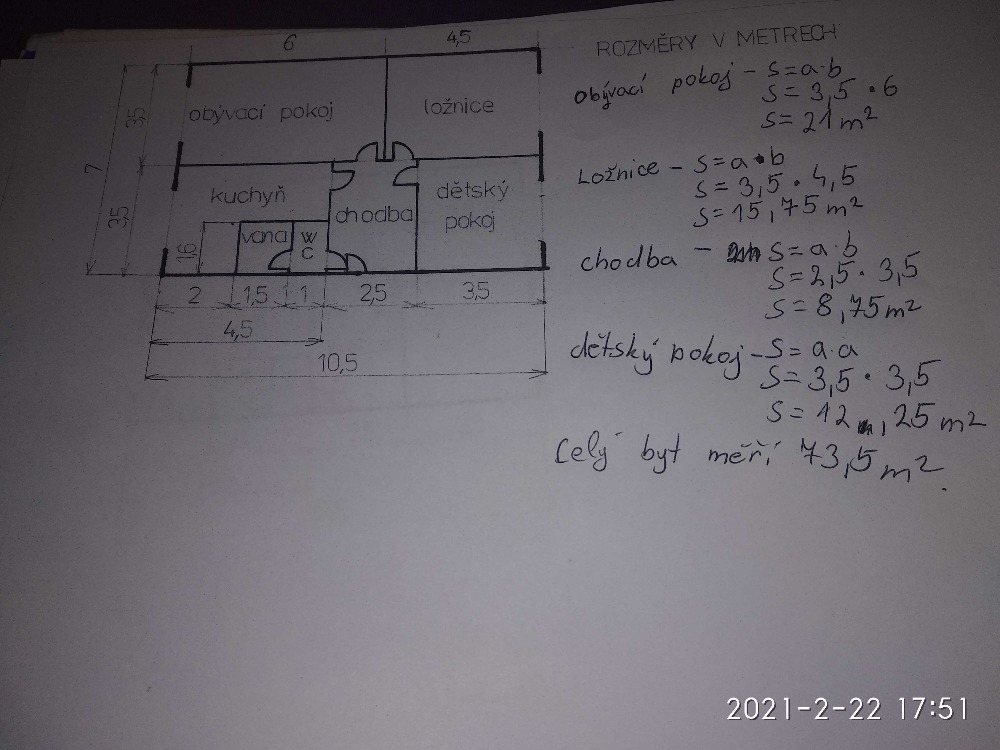 6
4,5
ROZMĚRY V METRECH
obývací pokoj
ložnice
3,5
7
3,5
kuchyň
chodba
dětský
pokoj
vana
W
C
1,6
2
1,5
1
2,5
3,5
4,5
10,5
obývací pokoj - S=a·b
S= 3,5 · 6
S= 21 m²
Ložnice - S=a·b
S= 3,5 · 4,5
S= 15,75 m²
chodba - S= a·b
S= 2,5 · 3,5
S= 8,75 m²
dětský pokoj - S= a·a
S= 3,5 · 3,5
S= 12,25 m²
Celý byt měří 73,5 m².
2021-2-22 17:51